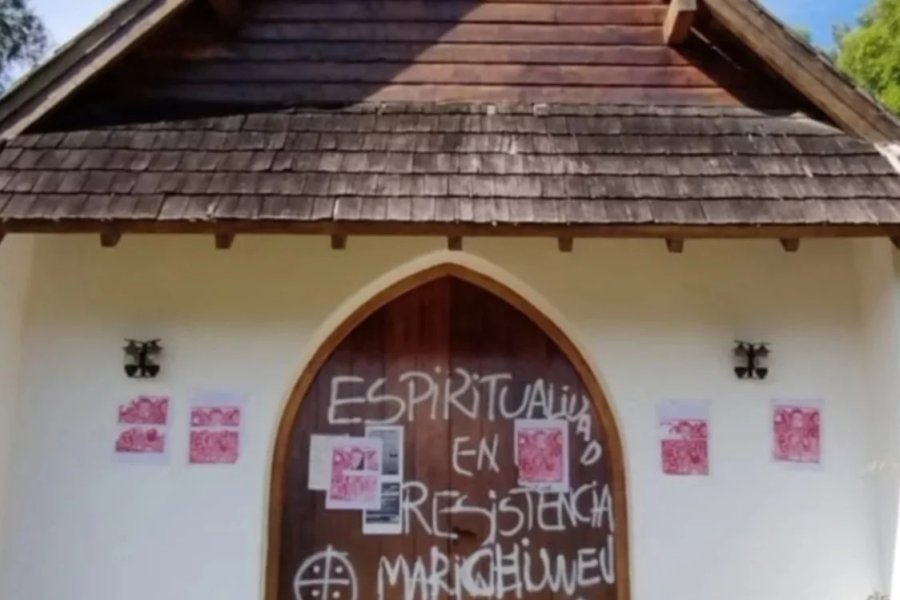 ESPIRITUALIDAD
EN
RESISTENCIA
MARICHIWEU